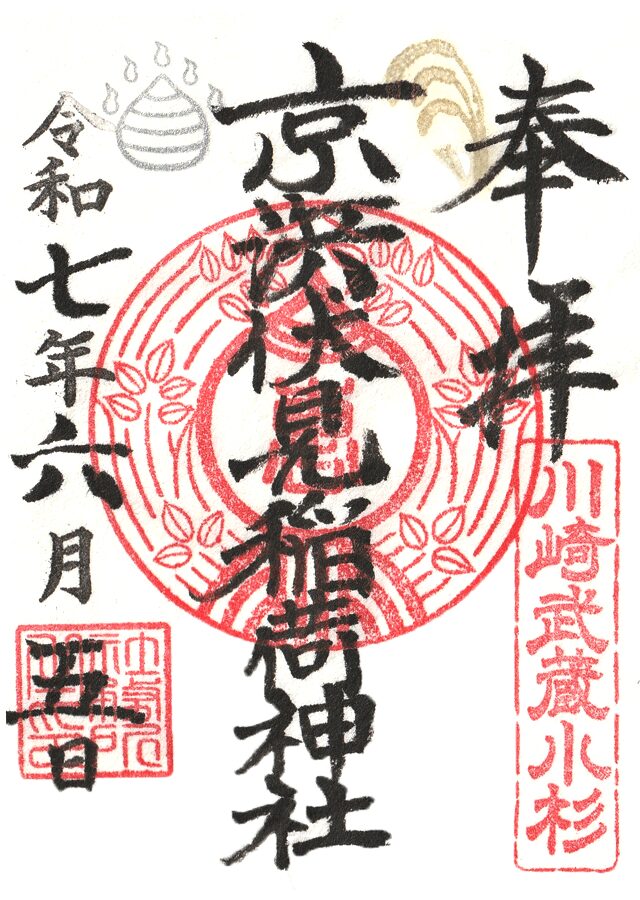 奉拝
川崎武蔵小杉
京濱伏見稲荷神社
令和七年六月五日